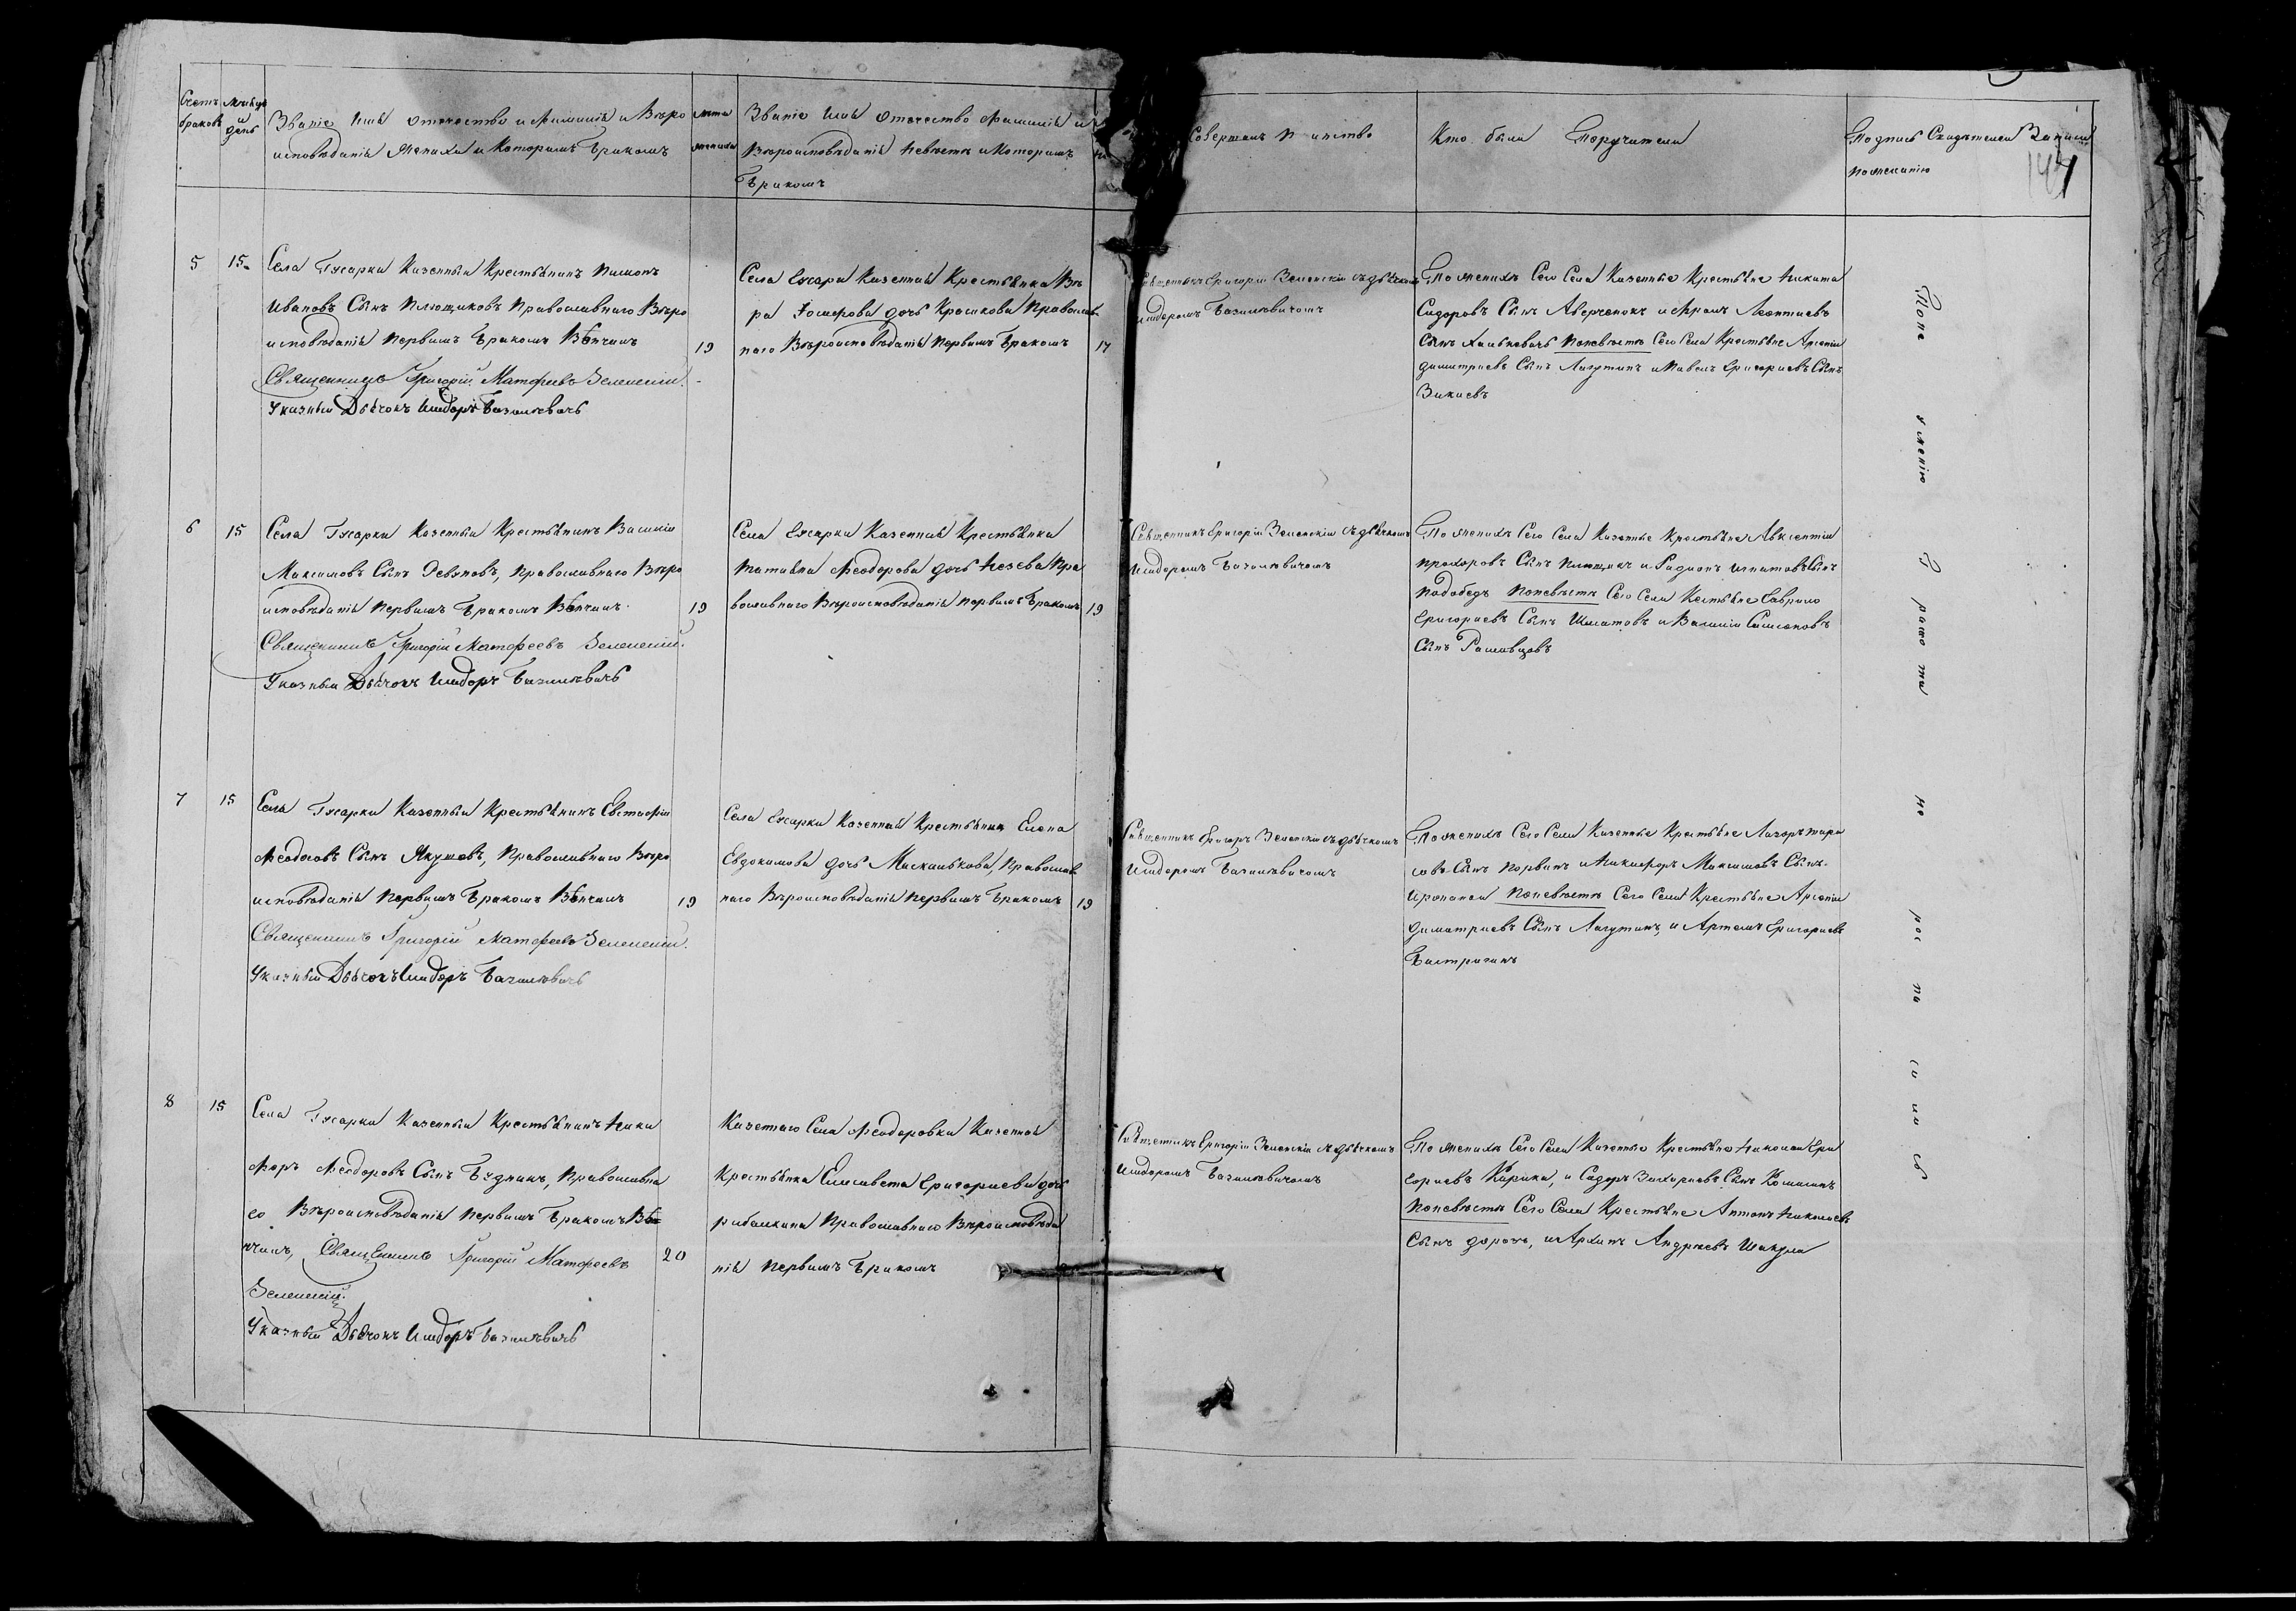 Счетъ браковъ
Мѣсяцъ и день
Званіе Имя отечество и Фамилія и Вѣро
исповѣданія Жениха и Которымъ Бракомъ
лѣта жениха
Званіе Имя Отечество Фамилія и
Вѣроисповѣданія Невѣсты и Которымъ
Бракомъ
Совершалъ Таинство
Кто были Поручители
Подпись Свидѣтелей Записи
по желанію
147
5
15.
Села Гусарки Казенный Крестьянинъ Пименъ
Ивановъ Сынъ Плющиковъ Православнаго Вѣро
исповѣданія Первымъ Бракомъ Вѣнчалъ
19
Священникъ Григорій Матфеевъ Зеленскій.
Указный Дьячокъ Исидоръ Базилевичъ
Села Гусарки Казенная Крестьянка Вѣ
ра дочь Крошкова Православ
наго Вѣроисповѣданія Первымъ Бракомъ
17
Священникъ Григорій Зеленскій съ дьячкомъ
Исидоромъ Базилевичомъ
По женихѣ Сего Села Казенные Крестьяне Никита
Сидоровъ Сынъ Аверченокъ и Леонтіевъ
Сынъ Поневѣстѣ Сего Села Крестьяне Арсеній
Димитріевъ Сынъ Лагутинъ и Павелъ Григоріевъ Сынъ
Зикаевъ
6
15
Села Гусарки Казенный Крестьянинъ Василій
Максимовъ Сынъ Девяновъ, Православнаго Вѣро
исповѣданія Первымъ Бракомъ Вѣнчалъ
19
Священникъ Григорій Матфеевъ Зеленскій.
Указный Дьячокъ Исидоръ Базилевичъ
Села Гусарки Казенная Крестьянка
Татьяна Феодорова дочь Пра
вославнаго Вѣроисповѣданія Первымъ Бракомъ
19
Священникъ Григорій Зеленскій съ дьячкомъ
Исидоромъ Базилевичомъ
По женихѣ Сего Села Казенные Крестьяне Авксентій
Прохоровъ Сынъ и Радионъ Игнатовъ Сынъ
Подобедъ Поневѣстѣ Сего Села Кестьяне Гаврило
Григориевъ Сынъ и Василій Симоновъ
Сынъ
7
15
Села Гусарки Казенный Крестьянинъ Евстафій
Феодоровъ Сынъ Якушовъ, Православнаго Вѣро
исповѣданія Первымъ Бракомъ Вѣнчалъ
19
Священникъ Григорій Матфеевъ Зеленскій.
Указный Дьячокъ Исидоръ Базилевичъ
Села Гусарки Казенная Крестьянка Елена
Евдокимова дочь Православ
наго Вѣроисповѣданія Первымъ Бракомъ
19
Священникъ Григоръ Зеленскій съ дьячкомъ
Исидоромъ Базилевичомъ
По женихѣ Сего Села Казенные Крестьяне Лазоръ Тара
совъ Сынъ и Никифоръ Максимовъ Сынъ
Поневѣстѣ Сего Села Крестьяне Арсеній
Димитріевъ Сынъ Лагутинъ, и Артемъ Григориевъ
8
15
Села Гусарки Казенный Крестьянинъ Ники
форъ Феодоровъ Сынъ Будникъ, Православна
го Вѣроисповѣданія Первымъ Бракомъ Вѣ
нчалъ, Священникъ Григорій Матфеевъ
20
Зеленскій.
Указный Дьячокъ Исидоръ Базилевичъ
Казеннаго Села Феодоровки Казенная
Крестьянка Елисавета Григориева дочь
рибалкина Православнаго Вѣроисповѣда
нія Первымъ Бракомъ
Священникъ Григорій Зеленскій съ дьячкомъ
Исидоромъ Базилевичомъ
По женихѣ Сего Села Казенные Крестьяне Николай Гри
горіевъ Карика, и Сидоръ Захаріевъ Сынъ
Поневѣстѣ Сего Села Крестьяне Антонъ Николаевъ
Сынъ и Архипъ Андреевъ Шакула
Поне умению Грамоты не росписались